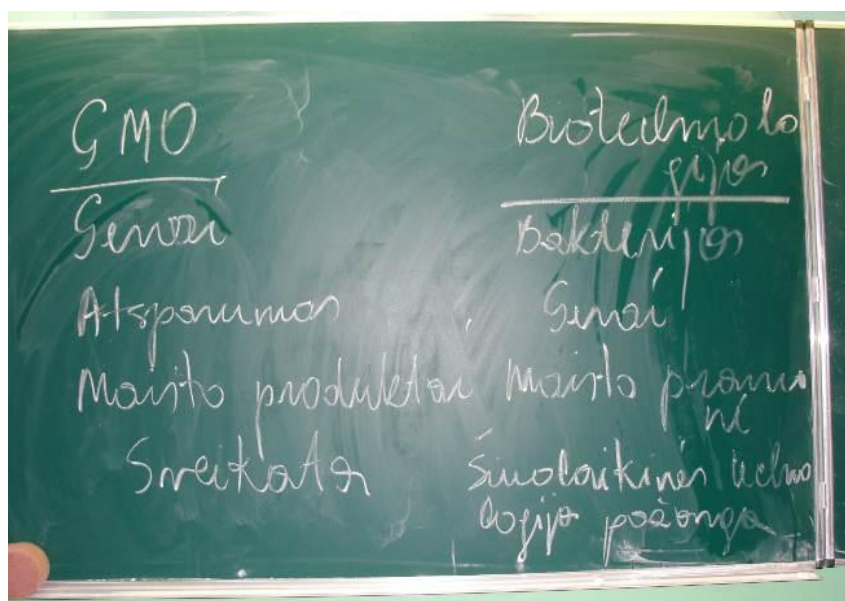 GMO
Genai
Atsparumas
Maisto produktai
Sveikata
Biotechnolo
gijos
Bakterijos
Genai
Maisto pramo
nė
Šiuolaikinės techno
logijo pažanga